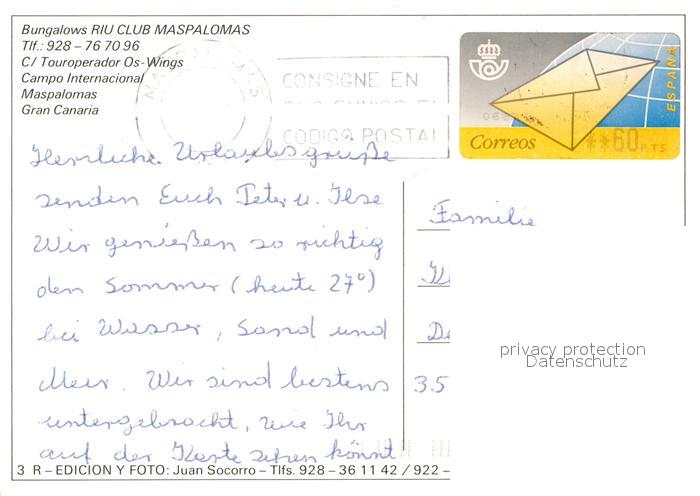 Bungalows RIU CLUB MASPALOMAS
Tlf.: 928 – 76 70 96
C/ Touroperador Os-Wings
Campo Internacional
Maspalomas
Gran Caniaria
MASPALOMAS
CONSIGNE EN
CODIGO POSTAL
ESPAÑA
Correos **60 PTS
Herrliche Urlaubsgrüße
senden Euch Peter u. Ilse
Wir genießen so richtig
den Sommer (heute 27°)
bei Wasser, Sand und
Meer. Wir sind bestens
untergebracht, wie Ihr
auf der Karte sehen könnt
Familie
35
privacy protection
Datenschutz
3 R – EDICION Y FOTO: Juan Socorro – Tlfs. 928 – 36 11 42 / 922 –